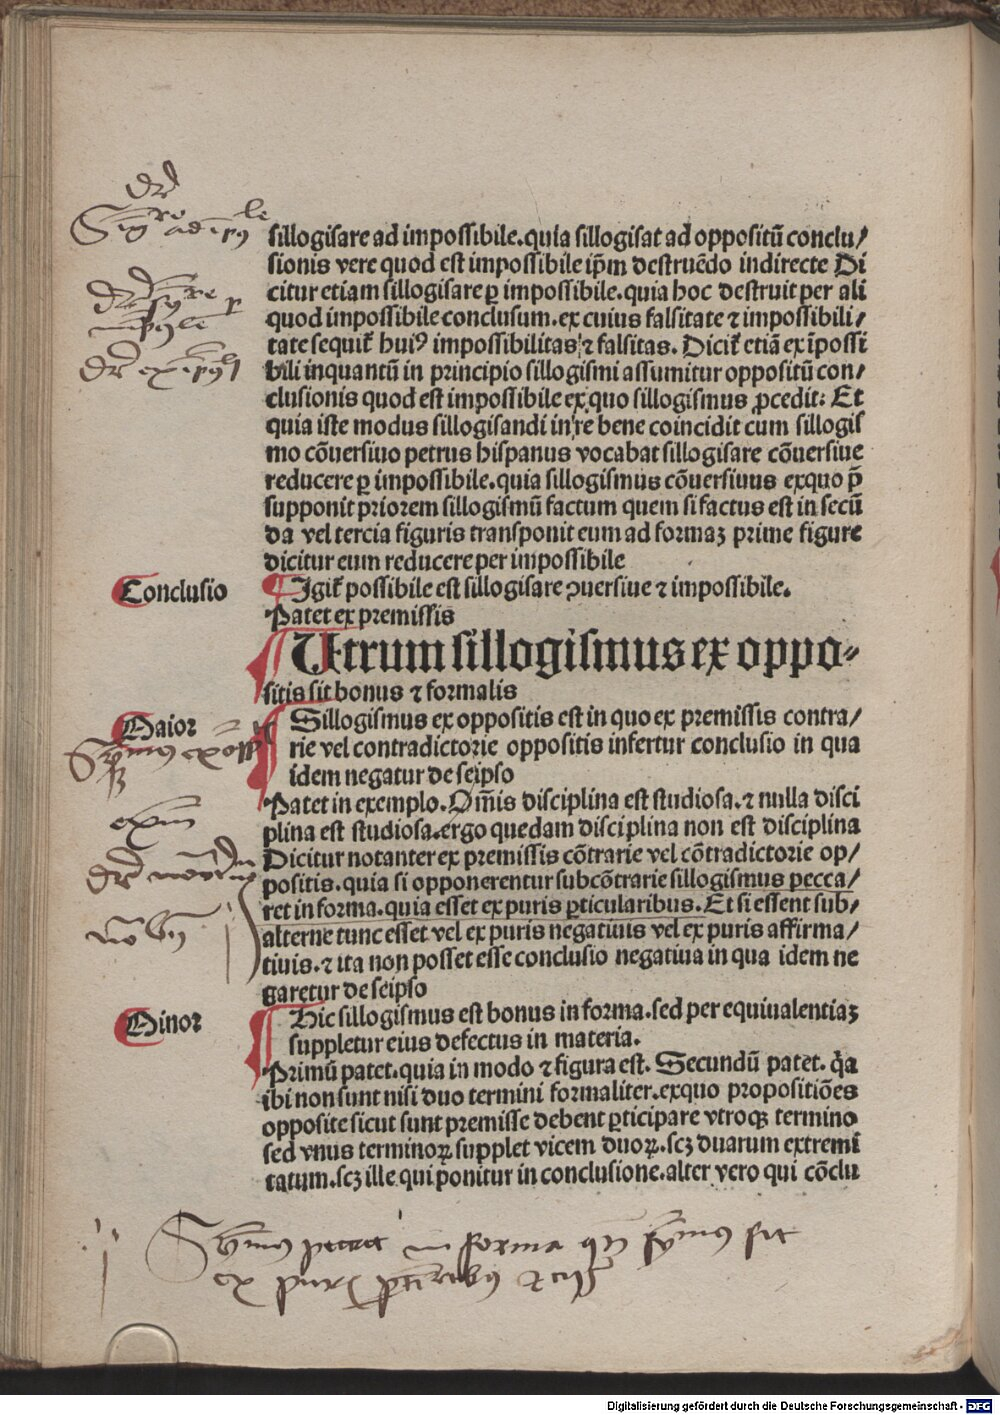 sillogisare ad impossibile.quia sillogisat ad oppositū conclu/
sionis vere quod est impossibile ip̄m destruēdo indirecte Di
citur etiam sillogisare ꝑ impossibile.quia hoc destruit per ali
quod impossibile conclusum.ex cuius falsitate ⁊ impossibili/
tate sequit᷑ huiꝰ impossibilitas ⁊ falsitas. Dicit᷑ etiā ex īpossi
bili inquantū in principio sillogismi assumitur oppositū con/
clusionis quod est impossibile ex quo sillogismus ꝓcedit: Et
quia iste modus sillogisandi in re bene coincidit cum sillogis
mo cōuersiuo petrus hispanus vocabat sillogisare cōuersiue
reducere ꝑ impossibile.quia sillogismus cōuersiuus exquo p̄
supponit priorem sillogismū factum quem si factus est in secū
da vel tercia figuris transponit eum ad formaꝫ prime figure
dicitur eum reducere per impossibile
Conclusio
Igit᷑ possibile est sillogisare ꝯuersiue ⁊ impossibile.
Patet ex premissis
Utrum sillogismus ex oppo-
sitis sit bonus ⁊ formalis
Maior
Sillogismus ex oppositis est in quo ex premissis contra/
rie vel contradictorie oppositis infertur conclusio in qua
idem negatur de seipso
Patet in exemplo. Om̄is disciplina est studiosa.⁊ nulla disci
plina est studiosa.ergo quedam disciplina non est disciplina
Dicitur notanter ex premissis cōtrarie vel cōtradictorie op/
positis.quia si opponerentur subcōtrarie sillogismus pecca/
ret in forma.quia esset ex puris ꝑticularibus. Et si essent sub/
alterne tunc esset vel ex puris negatiuis vel ex puris affirma/
tiuis.⁊ ita non posset esse conclusio negatiua in qua idem ne
garetur de seipso
Minor
Hic sillogismus est bonus in forma.sed per equiualentiaꝫ
suppletur eius defectus in materia.
Primū patet.quia in modo ⁊ figura est. Secundū patet. q̄a
ibi non sunt nisi duo termini formaliter.exquo propositiōes
opposite sicut sunt premisse debent ꝑticipare vtroqꝫ termino
sed vnus terminoꝝ supplet vicem duoꝝ.scꝫ duarum extremi
tatum.scꝫ ille qui ponitur in conclusione.alter vero qui cōclu
in forma
sit
ex
Digitalisierung gefördert durch die Deutsche Forschungsgemeinschaft - DFG